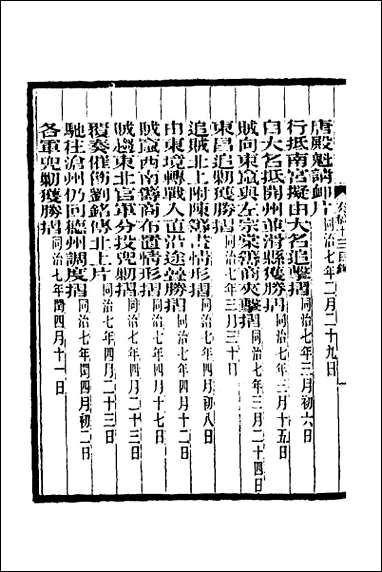 唐殿魁請卹片同治七年二月二十九日
行抵南宮擬由大名追擊摺同治七年三月初六日
自大名抵開州並滑縣獲勝摺同治七年三月十五日
賊向東竄與左宗棠籌商夾擊摺同治七年三月二十四日
東昌追勦獲勝摺同治七年三月三十日
追賊北上附陳籌畫情形摺同治七年四月初八日
由東境轉戰入直沿途營勝摺同治七年四月十二日
賊竄西南籌商布置情形摺同治七年四月十七日
賊趨東北官軍分投兜勦摺同治七年四月二十三日
覆奏催衡劉銘傳北上片同治七年四月二十三日
馳往滄州仍回德州調度摺同治七年閏四月初二日
各軍兜勦獲勝摺同治七年閏四月十一日